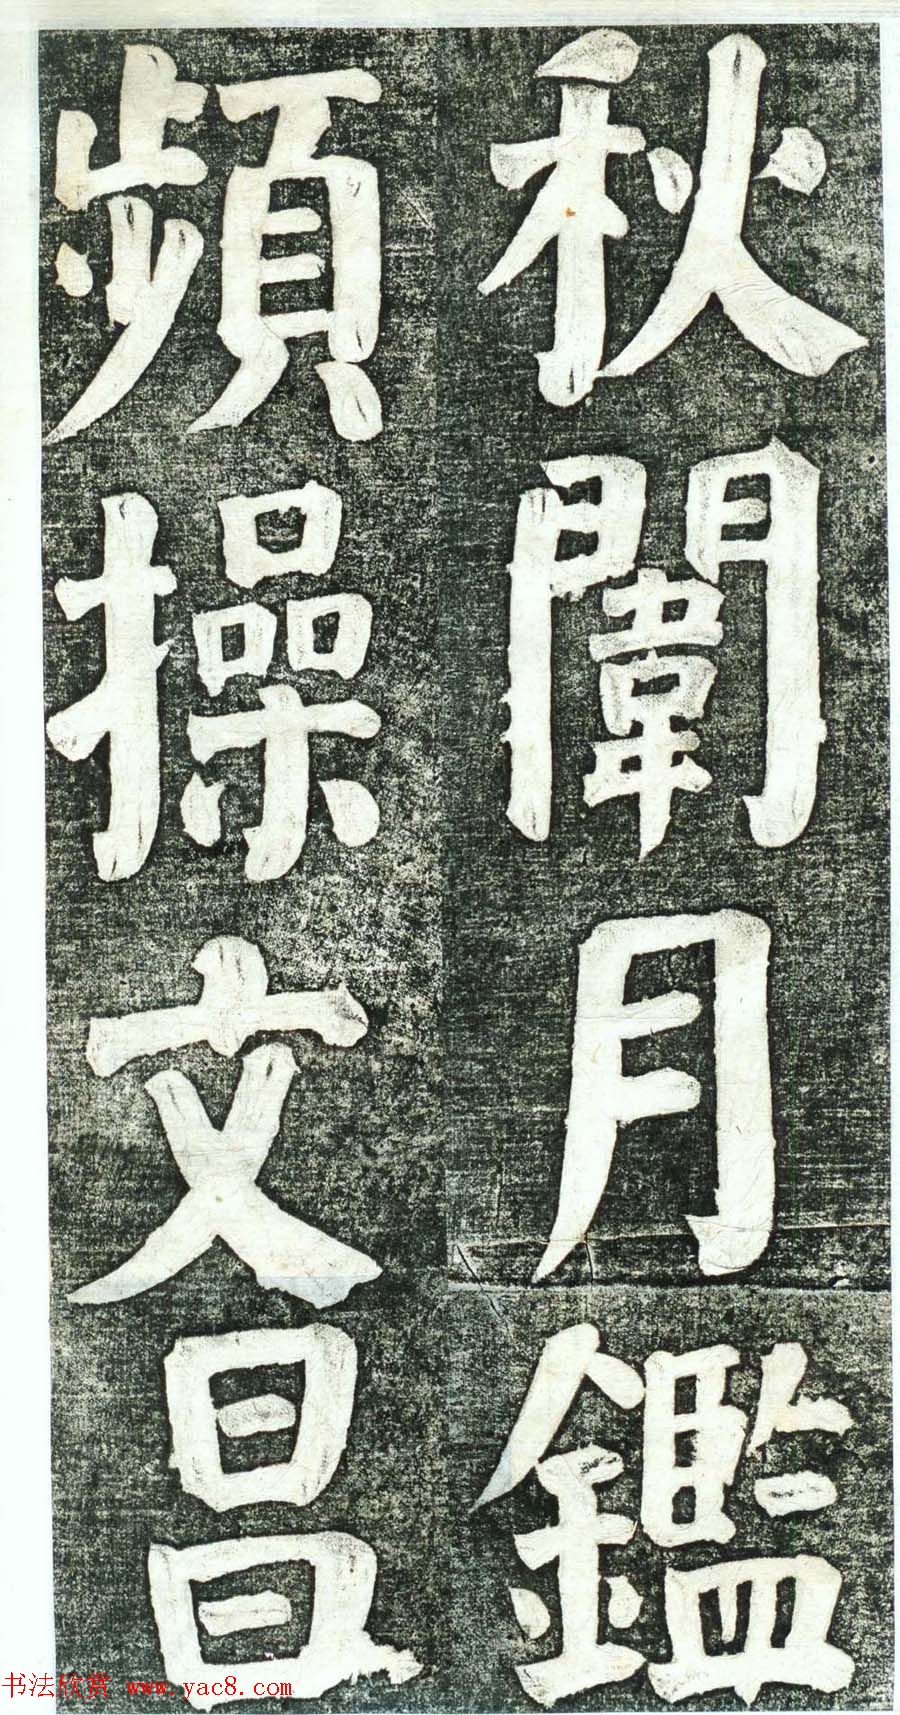 秋闈月鑑
頻操文昌
书法欣赏 www.yac8.com